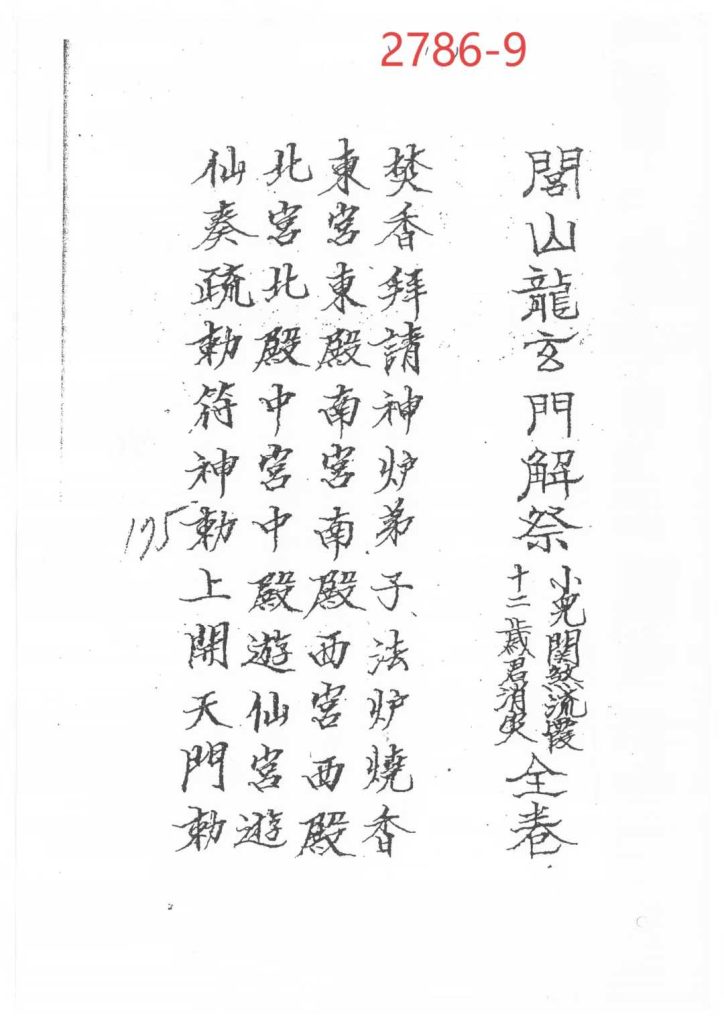 2786-9
閭山龍玄門解祭
小兒關煞流霞
十二歲君消災
全卷
焚香拜請神炉弟子法炉燒香
東宮東殿南宮南殿西宮西殿
北宮北殿中宮中殿遊仙宮遊
仙奏疏勅符神勅上開天門勅
175